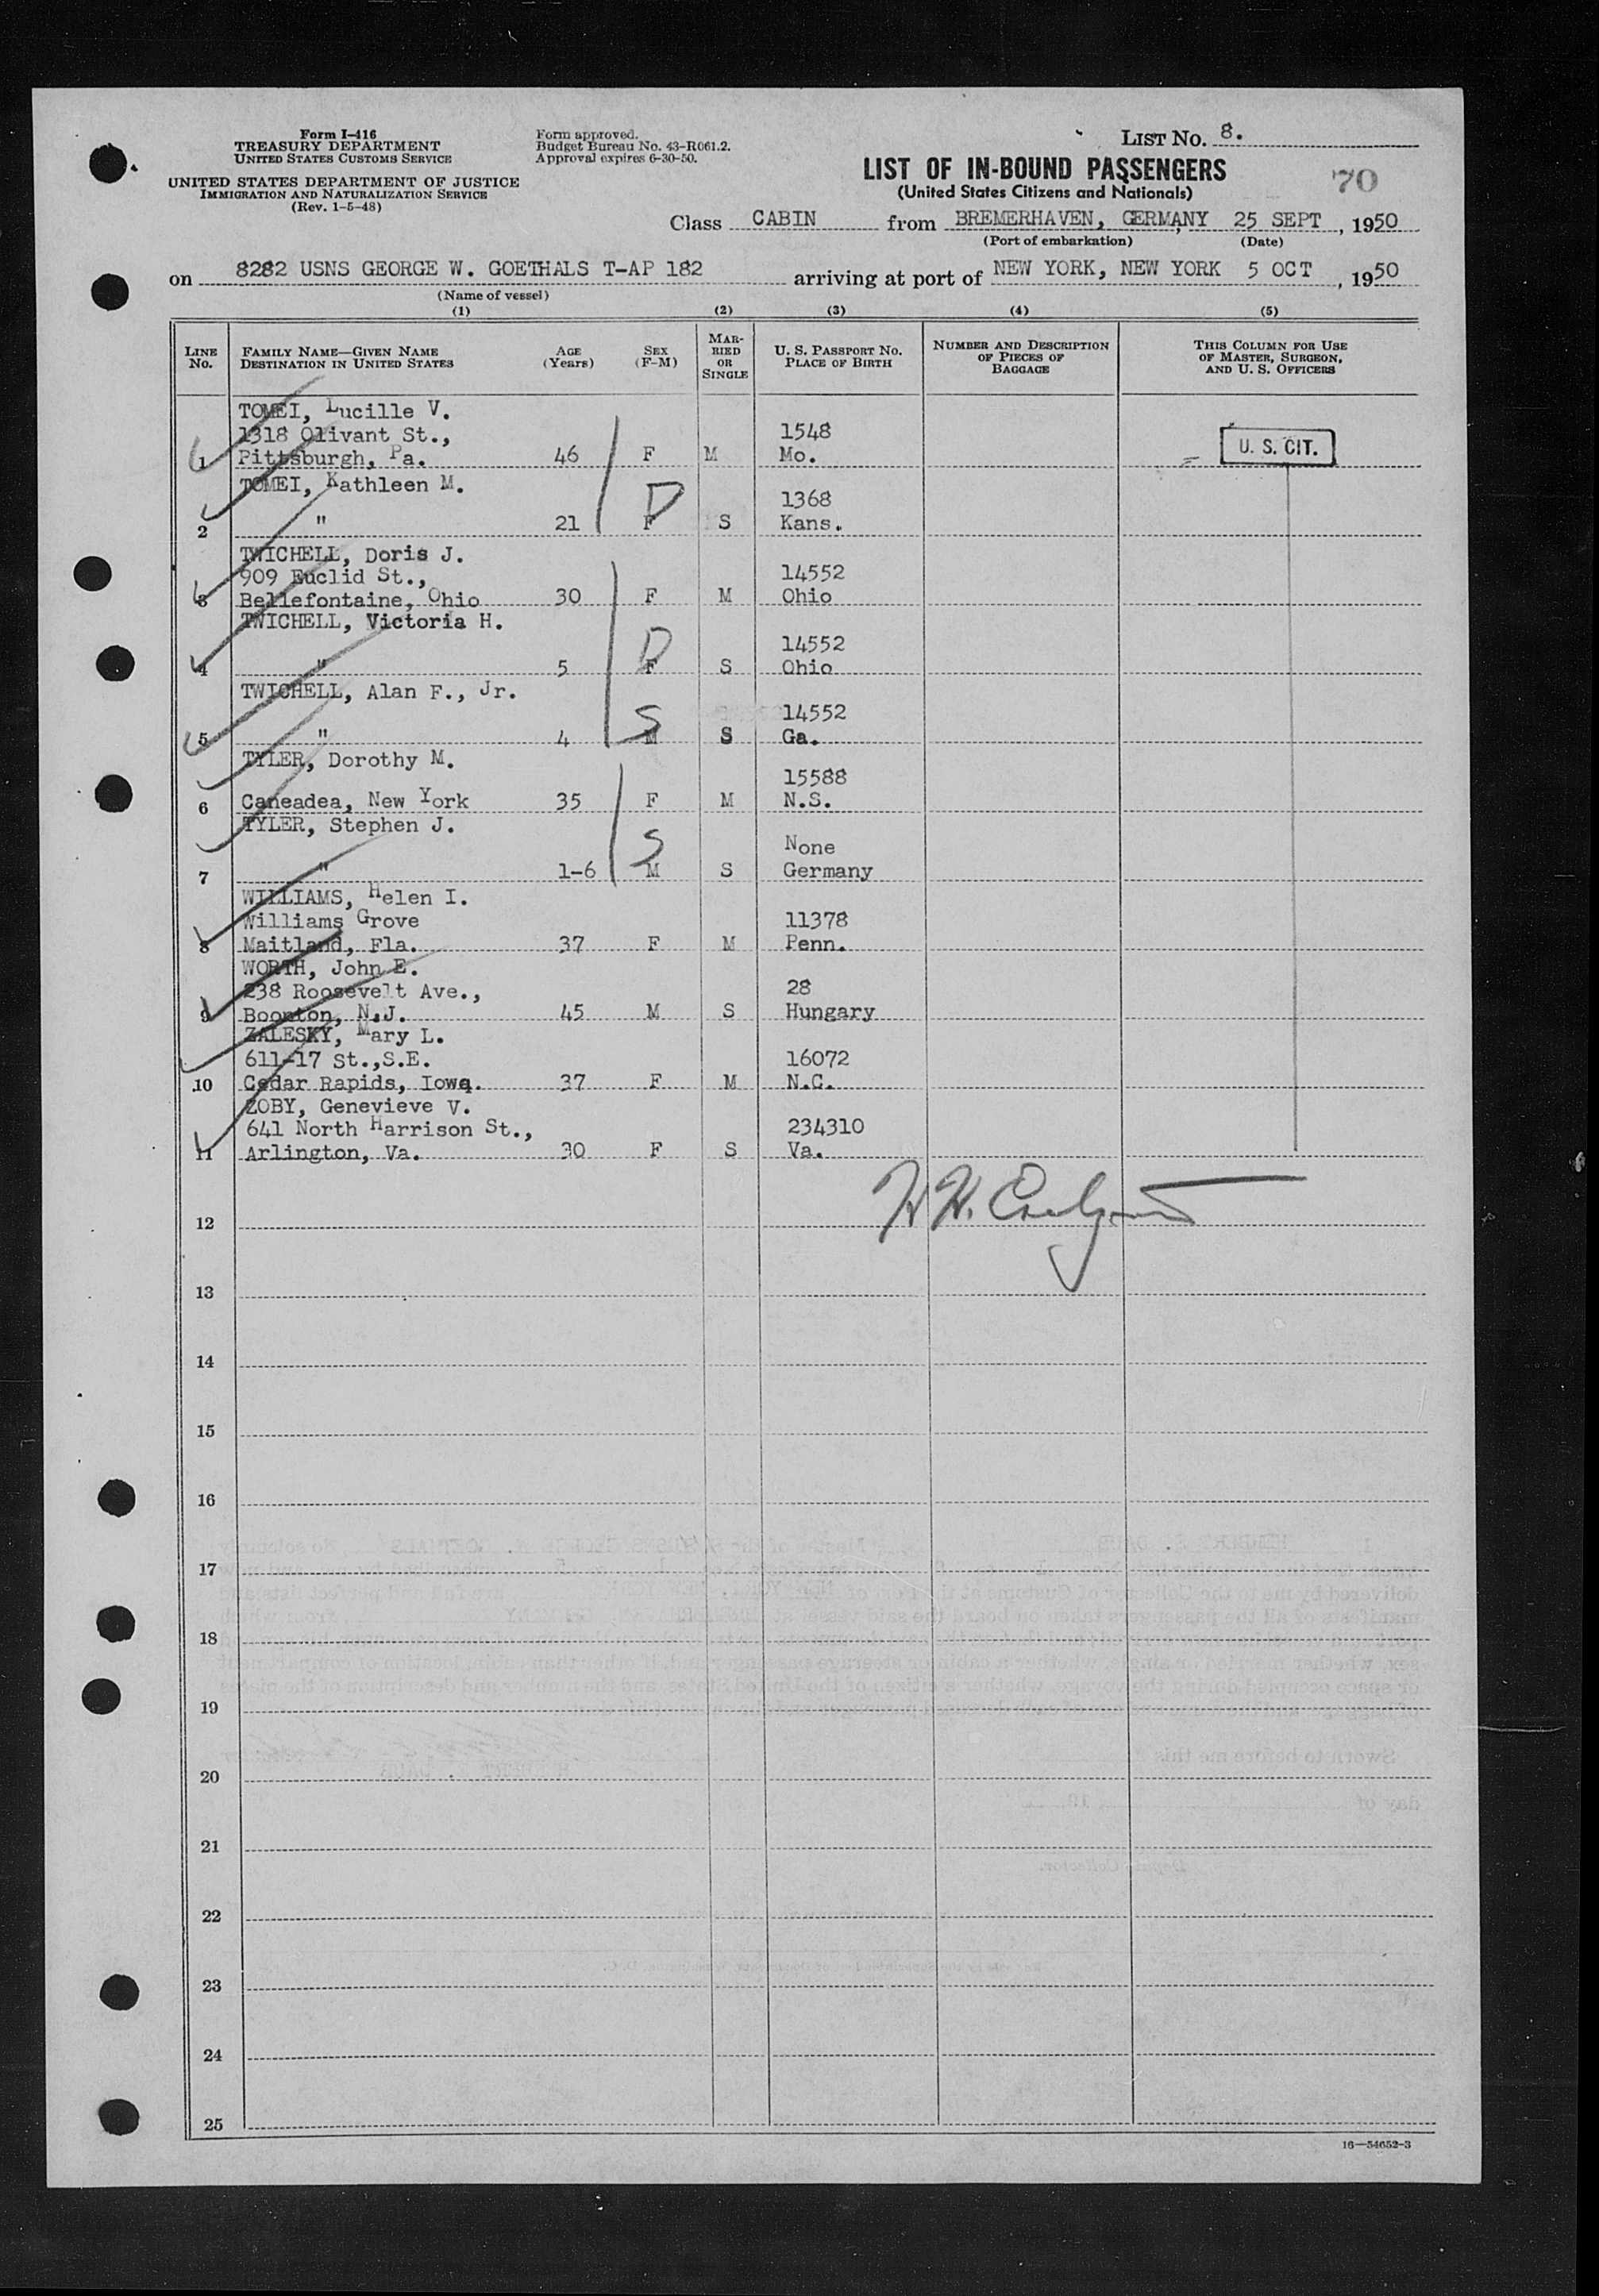 Form I-416
TREASURY DEPARTMENT
UNITED STATES CUSTOMS SERVICE
UNITED STATES DEPARTMENT OF JUSTICE
IMMIGRATION AND NATURALIZATION SERVICE
(Rev. 1-5-48)
Form approved.
Budget Bureau No. 43-R061.2.
Approval expires 6-30-50.
LIST No. 8.
LIST OF IN-BOUND PASSENGERS
(United States Citizens and Nationals)
70
Class CABIN from BREMERHAVEN, GERMANY, 25 SEPT, 1950
(Port of embarkation) (Date)
on 8282 USNS GEORGE W. GOETHALS T-AP 182 arriving at port of NEW YORK, NEW YORK 5 OCT, 1950
(Name of vessel)
(1) (2) (3) (4) (5)
LINE No.
FAMILY NAME—GIVEN NAME
DESTINATION IN UNITED STATES
AGE (Years)
SEX (F-M)
MARRIED OR SINGLE
U. S. PASSPORT No.
PLACE OF BIRTH
NUMBER AND DESCRIPTION OF PIECES OF BAGGAGE
THIS COLUMN FOR USE OF MASTER, SURGEON, AND U. S. OFFICERS
TOMEI, Lucille V.
1318 Olivant St., 1548
1 Pittsburgh, Pa. 46 F M Mo.
U. S. CIT.
TOMEI, Kathleen M.
D 1368
2 " 21 F S Kans.
TWICHELL, Doris J.
909 Euclid St., 14552
3 Bellefontaine, Ohio 30 F M Ohio
TWICHELL, Victoria H.
D 14552
4 " 5 F S Ohio
TWICHELL, Alan F., Jr.
S 14552
5 " 4 M S Ga.
TYLER, Dorothy M.
15588
6 Caneadea, New York 35 F M N.S.
TYLER, Stephen J.
S None
7 " 1-6 M S Germany
WILLIAMS, Helen I.
Williams Grove 11378
8 Maitland, Fla. 37 F M Penn.
WORTH, John E.
238 Roosevelt Ave., 28
9 Boonton, N.J. 45 M S Hungary
ZALESKY, Mary L.
611-17 St.,S.E. 16072
10 Cedar Rapids, Iowa. 37 F M N.C.
ZOBY, Genevieve V.
641 North Harrison St., 234310
11 Arlington, Va. 30 F S Va.
12
13
14
15
16
17
18
19
20
21
22
23
24
25
16—54652-3